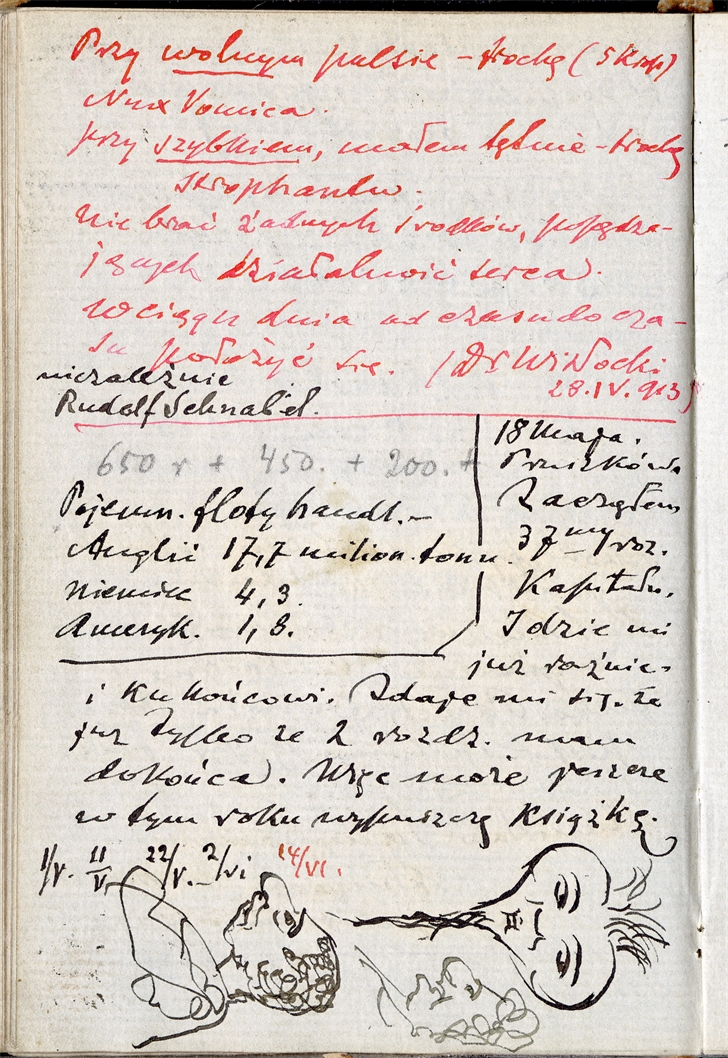 Przy wolnym pulsie – trochę (5 Krop)
Nux Vomica.
przy szybkiem, małem tętnie – trochę
Strophantu.
Nie brać żadnych środków, popędza-
jących działalność serca.
W ciągu dnia od czasu do cza-
su położyć się. /Dr Widocki
28.IV.913
niezależnie
Rudolf Schnabel.
650 r + 450. + 200. +
Pojemn. floty handl. –
Anglii 17,7 milion. tonn.
Niemiec 4,3.
Ameryk. 1,8.
18 Maja.
Pruszków
Zacząłem
37my roz.
Kapitału.
Idzie mi
już raźnie-
i ku końcowi. Zdaje mi się, że
już tylko ze 2 rozdz. mam
do końca. Więc może jeszcze
w tym roku wypuszczę książkę.
1/V. 11/V 22/V. 2/VI 14/VI.